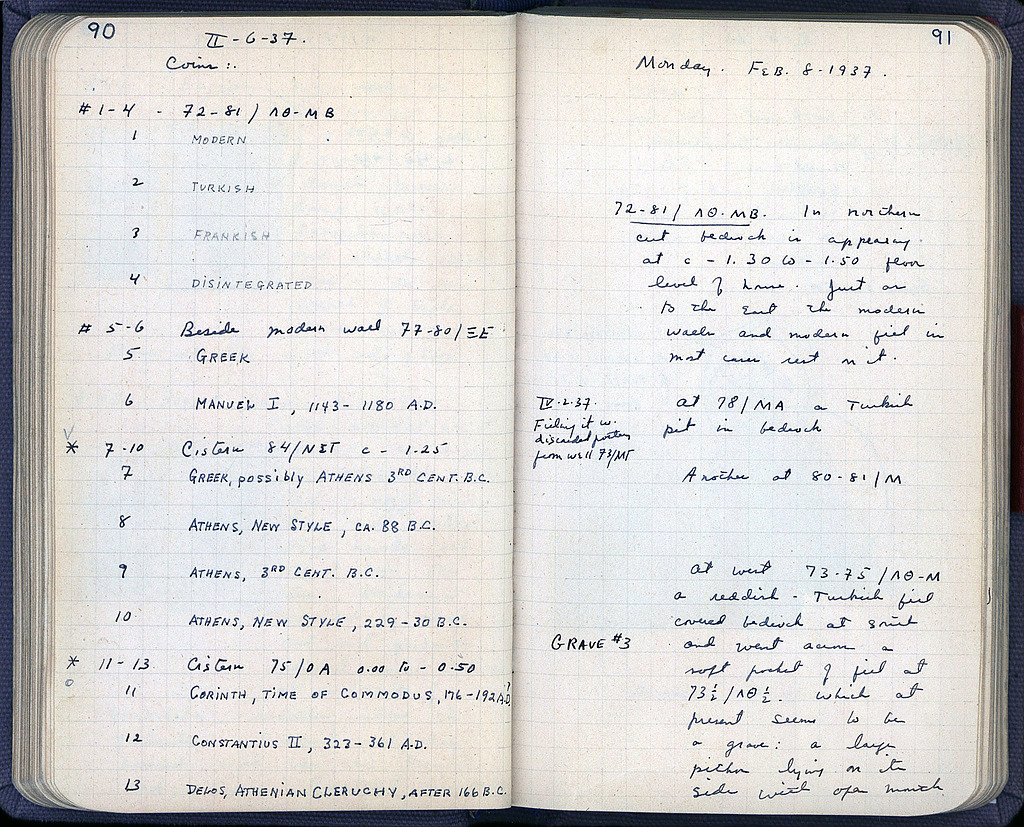 90
II-6-37.
Coins:.
#1-4 - 72-81/ΛΘ-ΜΒ
1 MODERN
2 TURKISH
3 FRANKISH
4 DISINTEGRATED
# 5-6 Beside modern wall 77-80/ΞΕ
5 GREEK
6 MANUEL I, 1143-1180 A.D.
* 7-10 Cistern 84/ΝΣΤ c - 1.25
7 GREEK, possibly ATHENS 3RD CENT. B.C.
8 ATHENS, NEW STYLE, CA. 88 B.C.
9 ATHENS, 3RD CENT. B.C.
10 ATHENS, NEW STYLE, 229-30 B.C.
* 11-13 Cistern 75/ΟΑ 0.00 to - 0.50
11 CORINTH, TIME OF COMMODUS, 176-192 A.D.?
12 CONSTANTIUS II, 323-361 A.D.
13 DELOS, ATHENIAN CLERUCHY, AFTER 166 B.C.
91
Monday. FEB. 8-1937.
72-81/ΛΘ-ΜΒ. In northern
cut bedrock is appearing
at c - 1.30 to - 1.50 floor
level of house. Just as
to the East the modern
walls and modern fill in
most cases rest on it.
at 78/ΜΑ a Turkish
pit in bedrock
IV.2.37.
Filling it w.
discarded pottery
from well 73/ΜΤ
Another at 80-81/Μ
at west 73-75/ΛΘ-Μ
a reddish - Turkish fill
covered bedrock at south
GRAVE #3
and went across a
soft pocket of fill at
73½/ΛΘ½. which at
present seems to be
a grave: a large
pithos lying on its
side with open mouth